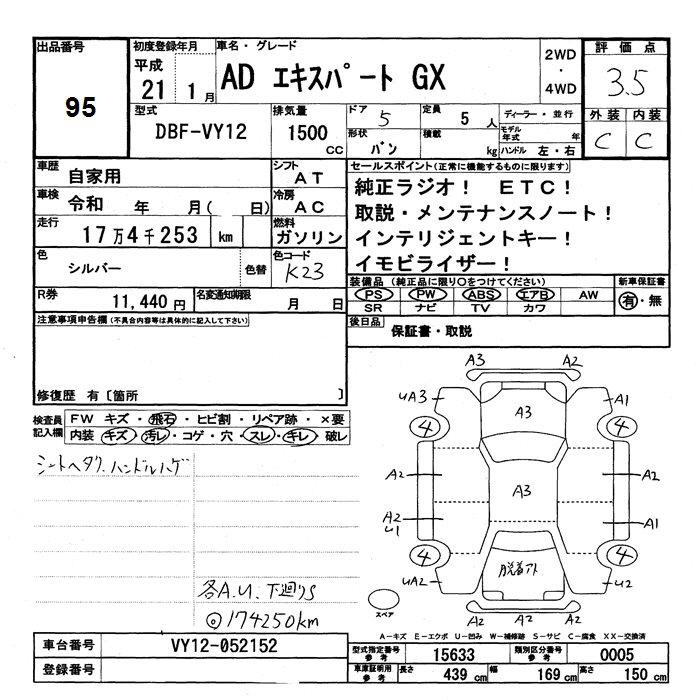 出品番号
95
初度登録年月
平成
21 1月
車名・グレード
AD エキスパート GX
2WD
・
4WD
評価点
3.5
外装 内装
C C
型式
DBF-VY12
排気量
1500 cc
ドア
5
形状
バン
定員
5 人
積載
kg
ディーラー・並行
モデル年式 年
ハンドル 左・右
車歴
自家用
シフト
AT
車検
令和 年 月( 日)
冷房
AC
走行
17万4千253 km
燃料
ガソリン
色
シルバー
色替
色コード
K23
R券
11,440円
名変通知期限
月 日
セールスポイント(正常に機能するものに限ります)
純正ラジオ! ETC!
取説・メンテナンスノート!
インテリジェントキー!
イモビライザー!
装備品 (純正品に限り○をつけてください)
PS PW ABS エアB AW
SR ナビ TV カワ
新車保証書
有・無
後日品
保証書・取説
注意事項申告欄(不具合内容等は具体的に記入して下さい)
修復歴 有〔箇所 〕
検査員記入欄
FW キズ・飛石・ヒビ割・リペア跡・×要
内装 キズ・汚レ・コゲ・穴・スレ・キレ・破レ
シートヘタリ.ハンドルハゲ
各A.U.下廻りS
◎174250km
A3 A2
uA3 A3 A1
4 4
A2 A3 A2
A2 u1 A1
4 4
uA2 脱着アト u2
A2 A2 A2
スペア
A-キズ E-エクボ U-凹み W-補修跡 S-サビ C-腐食 XX-交換済
車台番号
VY12-052152
登録番号
型式指定番号 参考
15633
類別区分番号 参考
0005
車庫証明用 参考
長さ 439 cm 幅 169 cm 高さ 150 cm